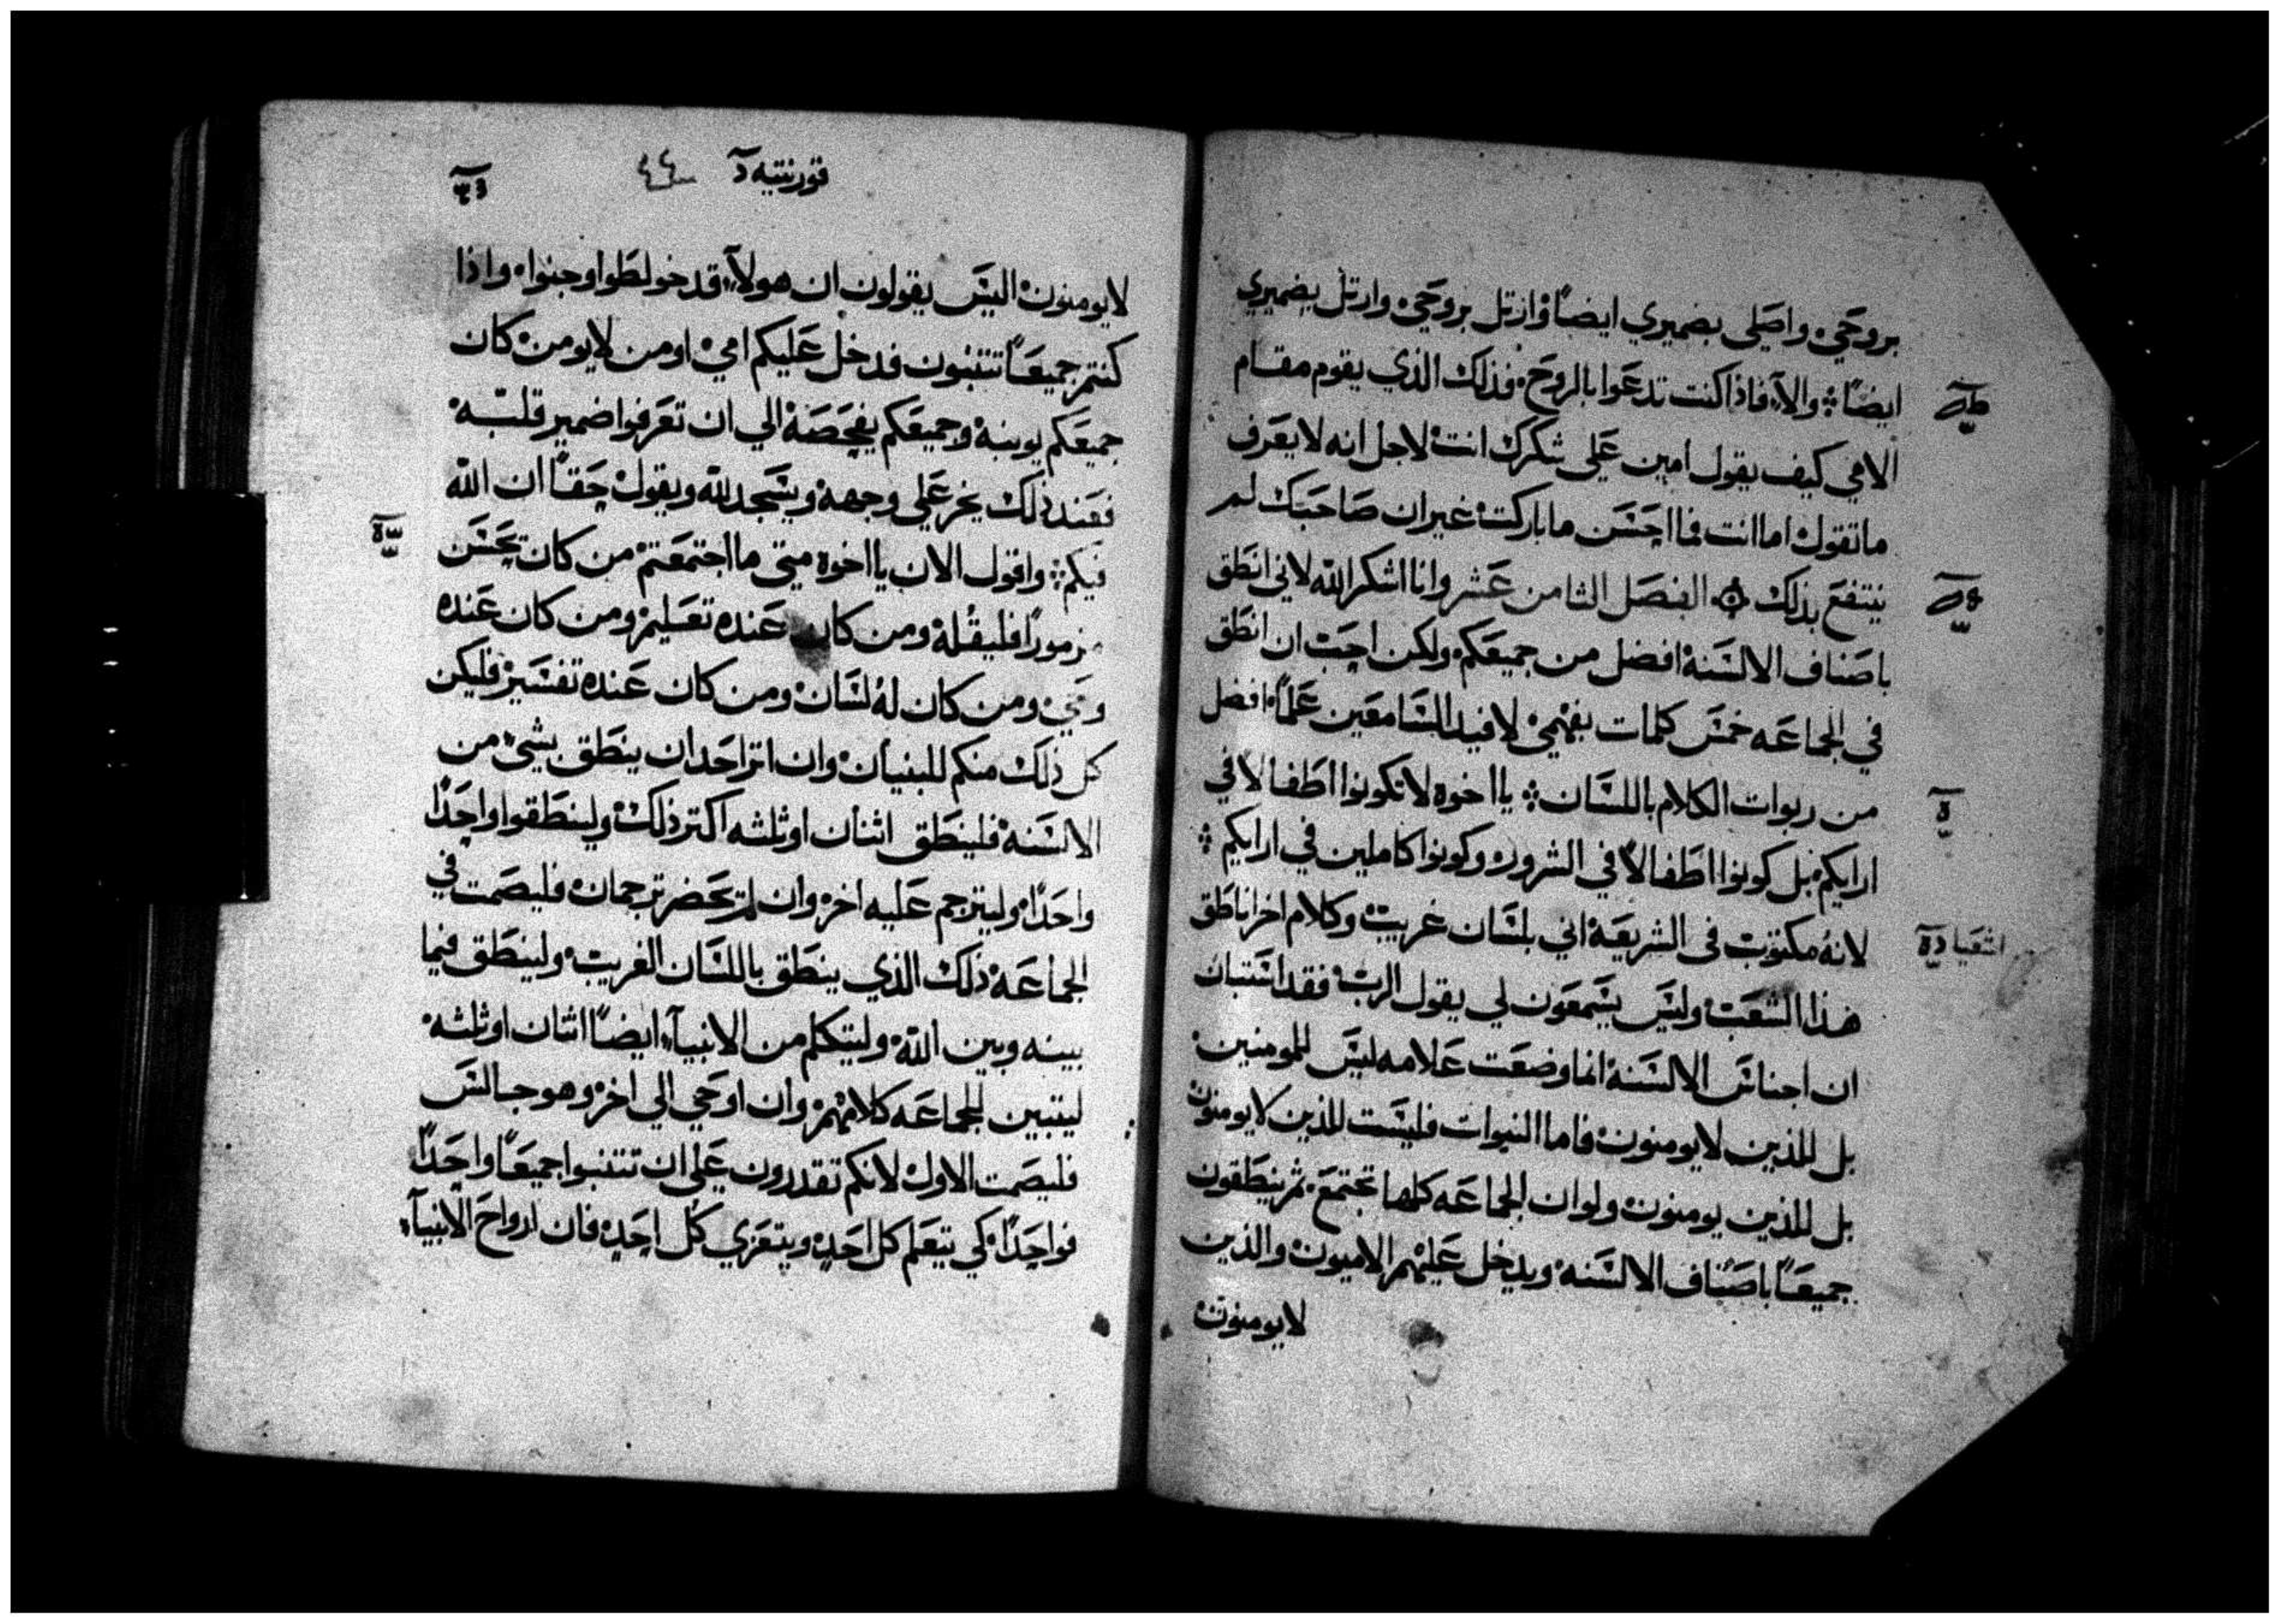 بروحي واصلي بضميري ايضًا وارتل بروحي وارتل بضميري
ايضًا والا فاذا كنت تدعوا بالروح فذلك الذي يقوم مقام
الامي كيف يقول امين على شكرك انت لاجل انه لا يعرف
ما تقول اما انت فما احسن ما باركت غير ان صاحبك لم
ينتفع بذلك الفصل الثامن عشر وانا اشكر الله لاني انطق
باصناف الالسنة افضل من جميعكم ولكن احب ان انطق
في الجماعه خمس كلمات بفهمي لافيد السامعين علمًا افضل
من ربوات الكلام باللسان يا اخوه لا تكونوا اطفالا في
ارايكم بل كونوا اطفالاً في الشرور وكونوا كاملين في ارايكم
لانه مكتوب في الشريعة اني بلسان غريب وكلام اخر اناطق
هذا الشعب وليس يسمعون لي يقول الرب فقد استبان
ان اجناس الالسنة انما وضعت علامه ليس للمومنين
بل للذين لا يومنون فاما النبوات فليست للذين لا يومنون
بل للذين يومنون ولو ان الجماعه كلها تجتمع ثم ينطقون
جميعًا باصناف الالسنه ويدخل عليهم الاميون والذين
لا يومنون
اشعيا
قورنتيه ٤٤
لا يومنون اليس يقولون ان هولاء قد خولطوا وجنوا واذا
كنتم جميعًا تتنبون فدخل عليكم امي او من لا يومن كان
جميعكم يوبنه وجميعكم يفحصه الي ان تعرفوا ضمير قلبه
فعند ذلك يخر على وجهه ويسجد لله ويقول حقًا ان الله
فيكم واقول الان يا اخوه متى ما اجتمعتم من كان يحسن
مزمورًا فليقله ومن كان عنده تعليم ومن كان عنده
وحي ومن كان له لسان ومن كان عنده تفسير فليكن
كل ذلك منكم للبنيان وان اثر احد ان ينطق بشيء من
الالسنه فلينطق اثنان او ثلثه اكثر ذلك ولينطقوا واحدًا
واحدًا وليترجم عليه اخر وان لم يحضر ترجمان فليصمت في
الجماعه ذلك الذي ينطق باللسان الغريب ولينطق فيما
بينه وبين الله وليتكلم من الانبيآء ايضًا اثنان او ثلثه
ليتبين للجماعه كلامهم وان اوحي الى اخر وهو جالس
فليصمت الاول لانكم تقدرون على ان تتنبوا جميعًا واحدًا
فواحدًا كي يتعلم كل احد ويتعزي كل احد فان ارواح الانبيآء